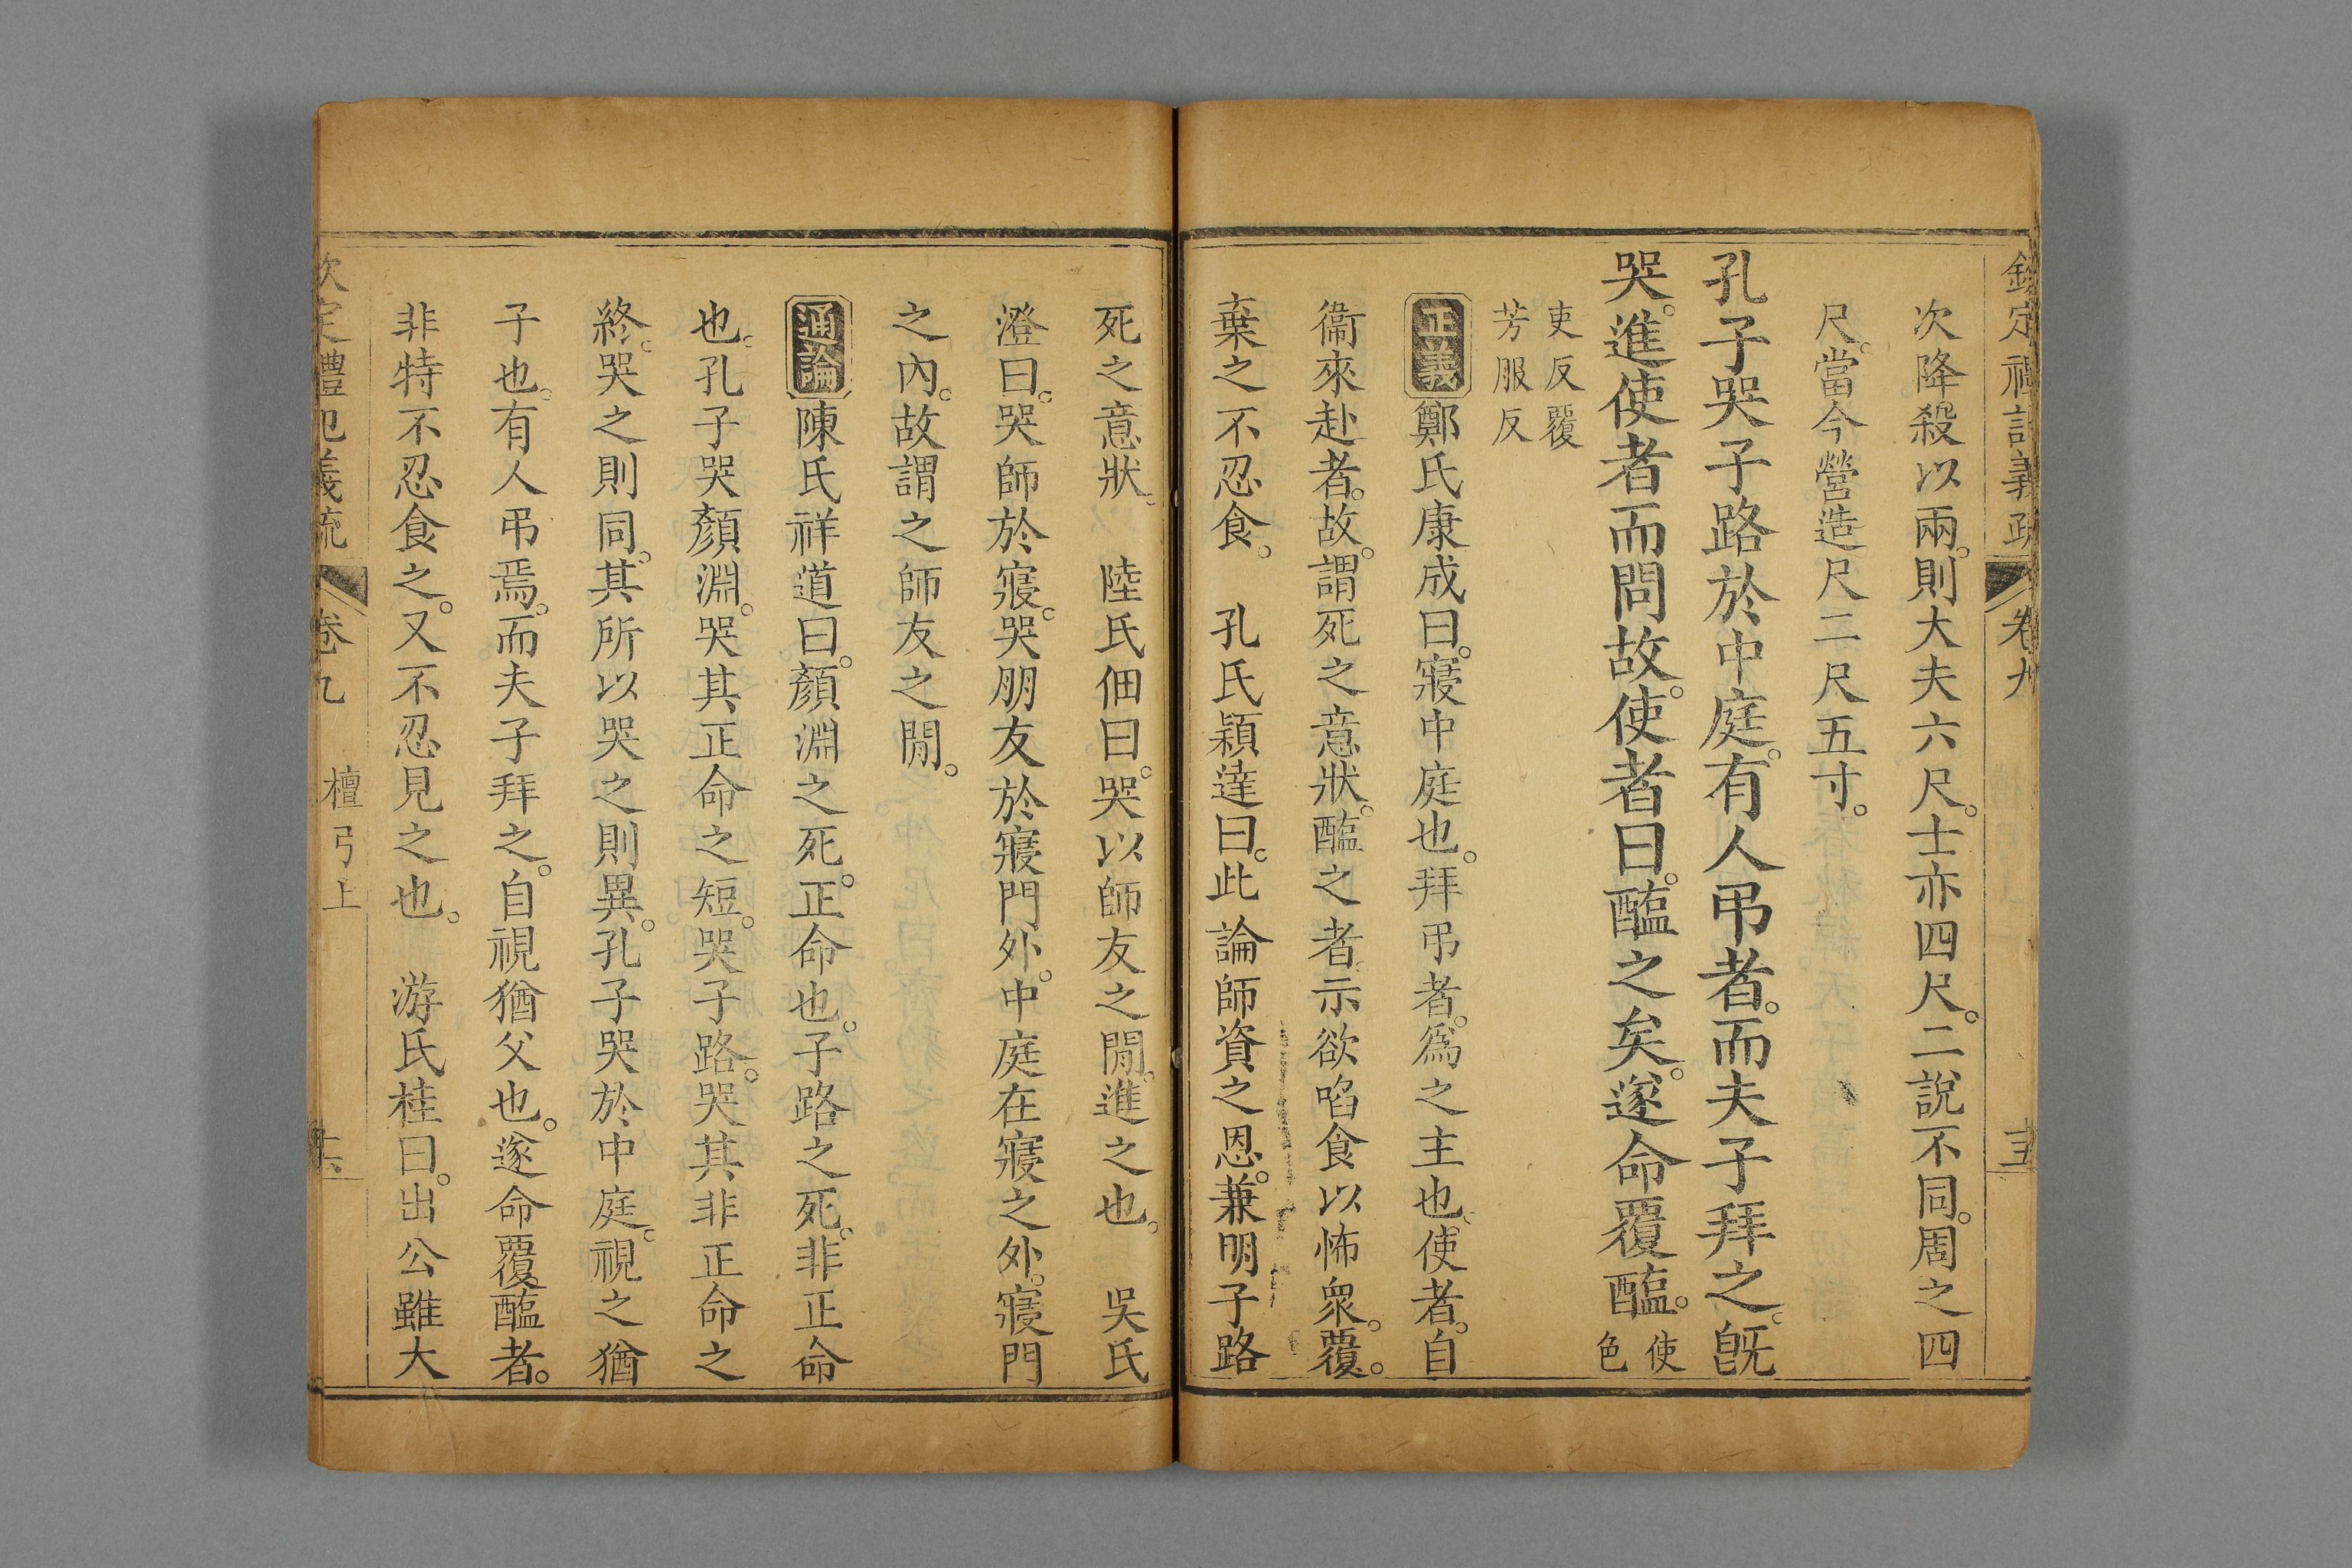 欽定禮記義疏 卷九 十五
次降殺以兩。則大夫六尺。士亦四尺。二說不同。周之四
尺。當今營造尺二尺五寸。
孔子哭子路於中庭。有人弔者。而夫子拜之。旣
哭。進使者而問故。使者曰。醢之矣。遂命覆醢。使色
吏反覆
芳服反
正義 鄭氏康成曰。寢中庭也。拜弔者。爲之主也。使者。自
衞來赴者。故。謂死之意狀。醢之者。示欲啗食以怖衆。覆。
棄之不忍食。 孔氏穎達曰。此論師資之恩。兼明子路
死之意狀。 陸氏佃曰。哭以師友之閒。進之也。 吳氏
澄曰。哭師於寢。哭朋友於寢門外。中庭在寢之外。寢門
之內。故謂之師友之閒。
通論 陳氏祥道曰。顏淵之死。正命也。子路之死。非正命
也。孔子哭顏淵。哭其正命之短。哭子路。哭其非正命之
終。哭之則同。其所以哭之則異。孔子哭於中庭。視之猶
子也。有人弔焉。而夫子拜之。自視猶父也。遂命覆醢者。
非特不忍食之。又不忍見之也。 游氏桂曰。出公雖大
欽定禮記義疏 卷九 檀弓上 十六